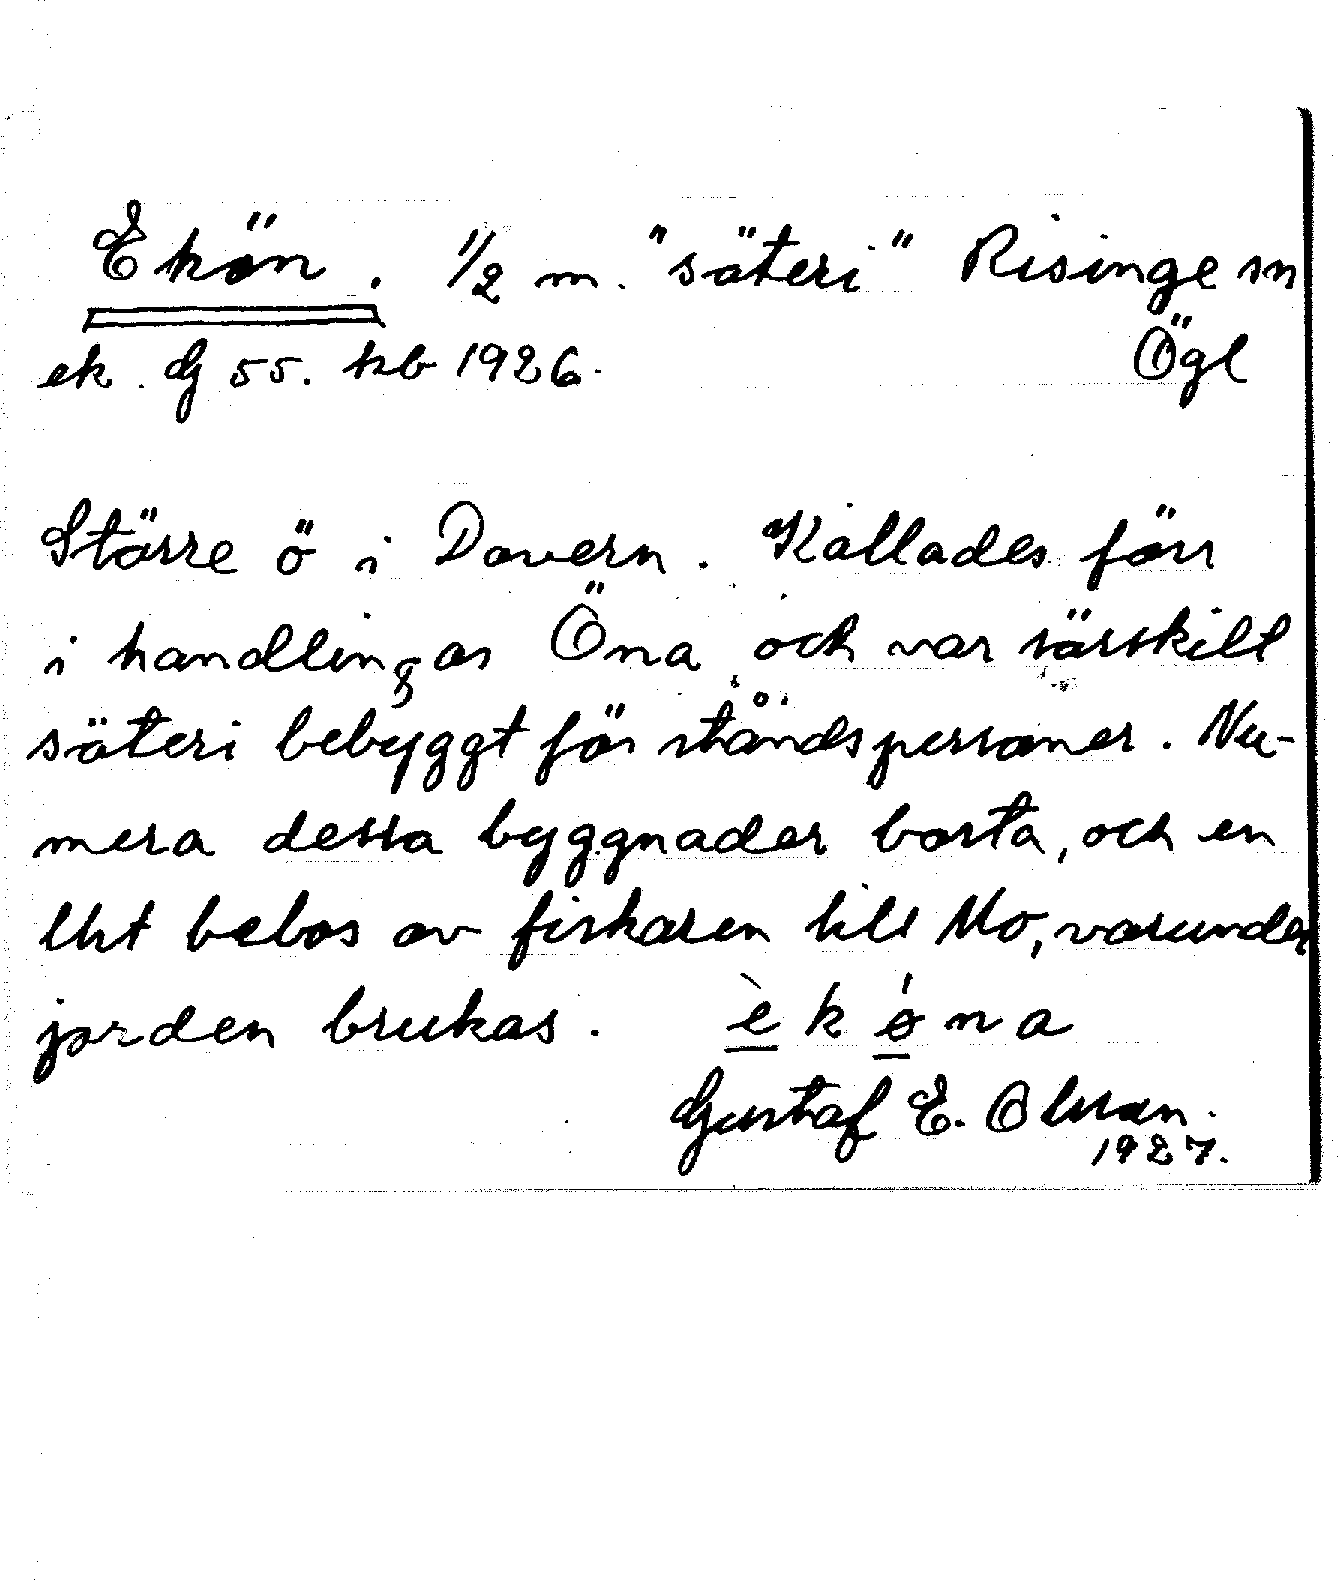 Ekön. 1/2 m. "säteri" Risinge sn
ek. G 55. kb 1926. Ögl
Större ö i Dovern. Kallades förr
i handlingar Öna och var särskilt
säteri bebyggt för ståndspersoner. Nu-
mera dessa byggnader borta, och en
lht bebos av fiskaren till Mo, varunder
jorden brukas. è k ǿ n a
Gustaf E. Olsson.
1927.